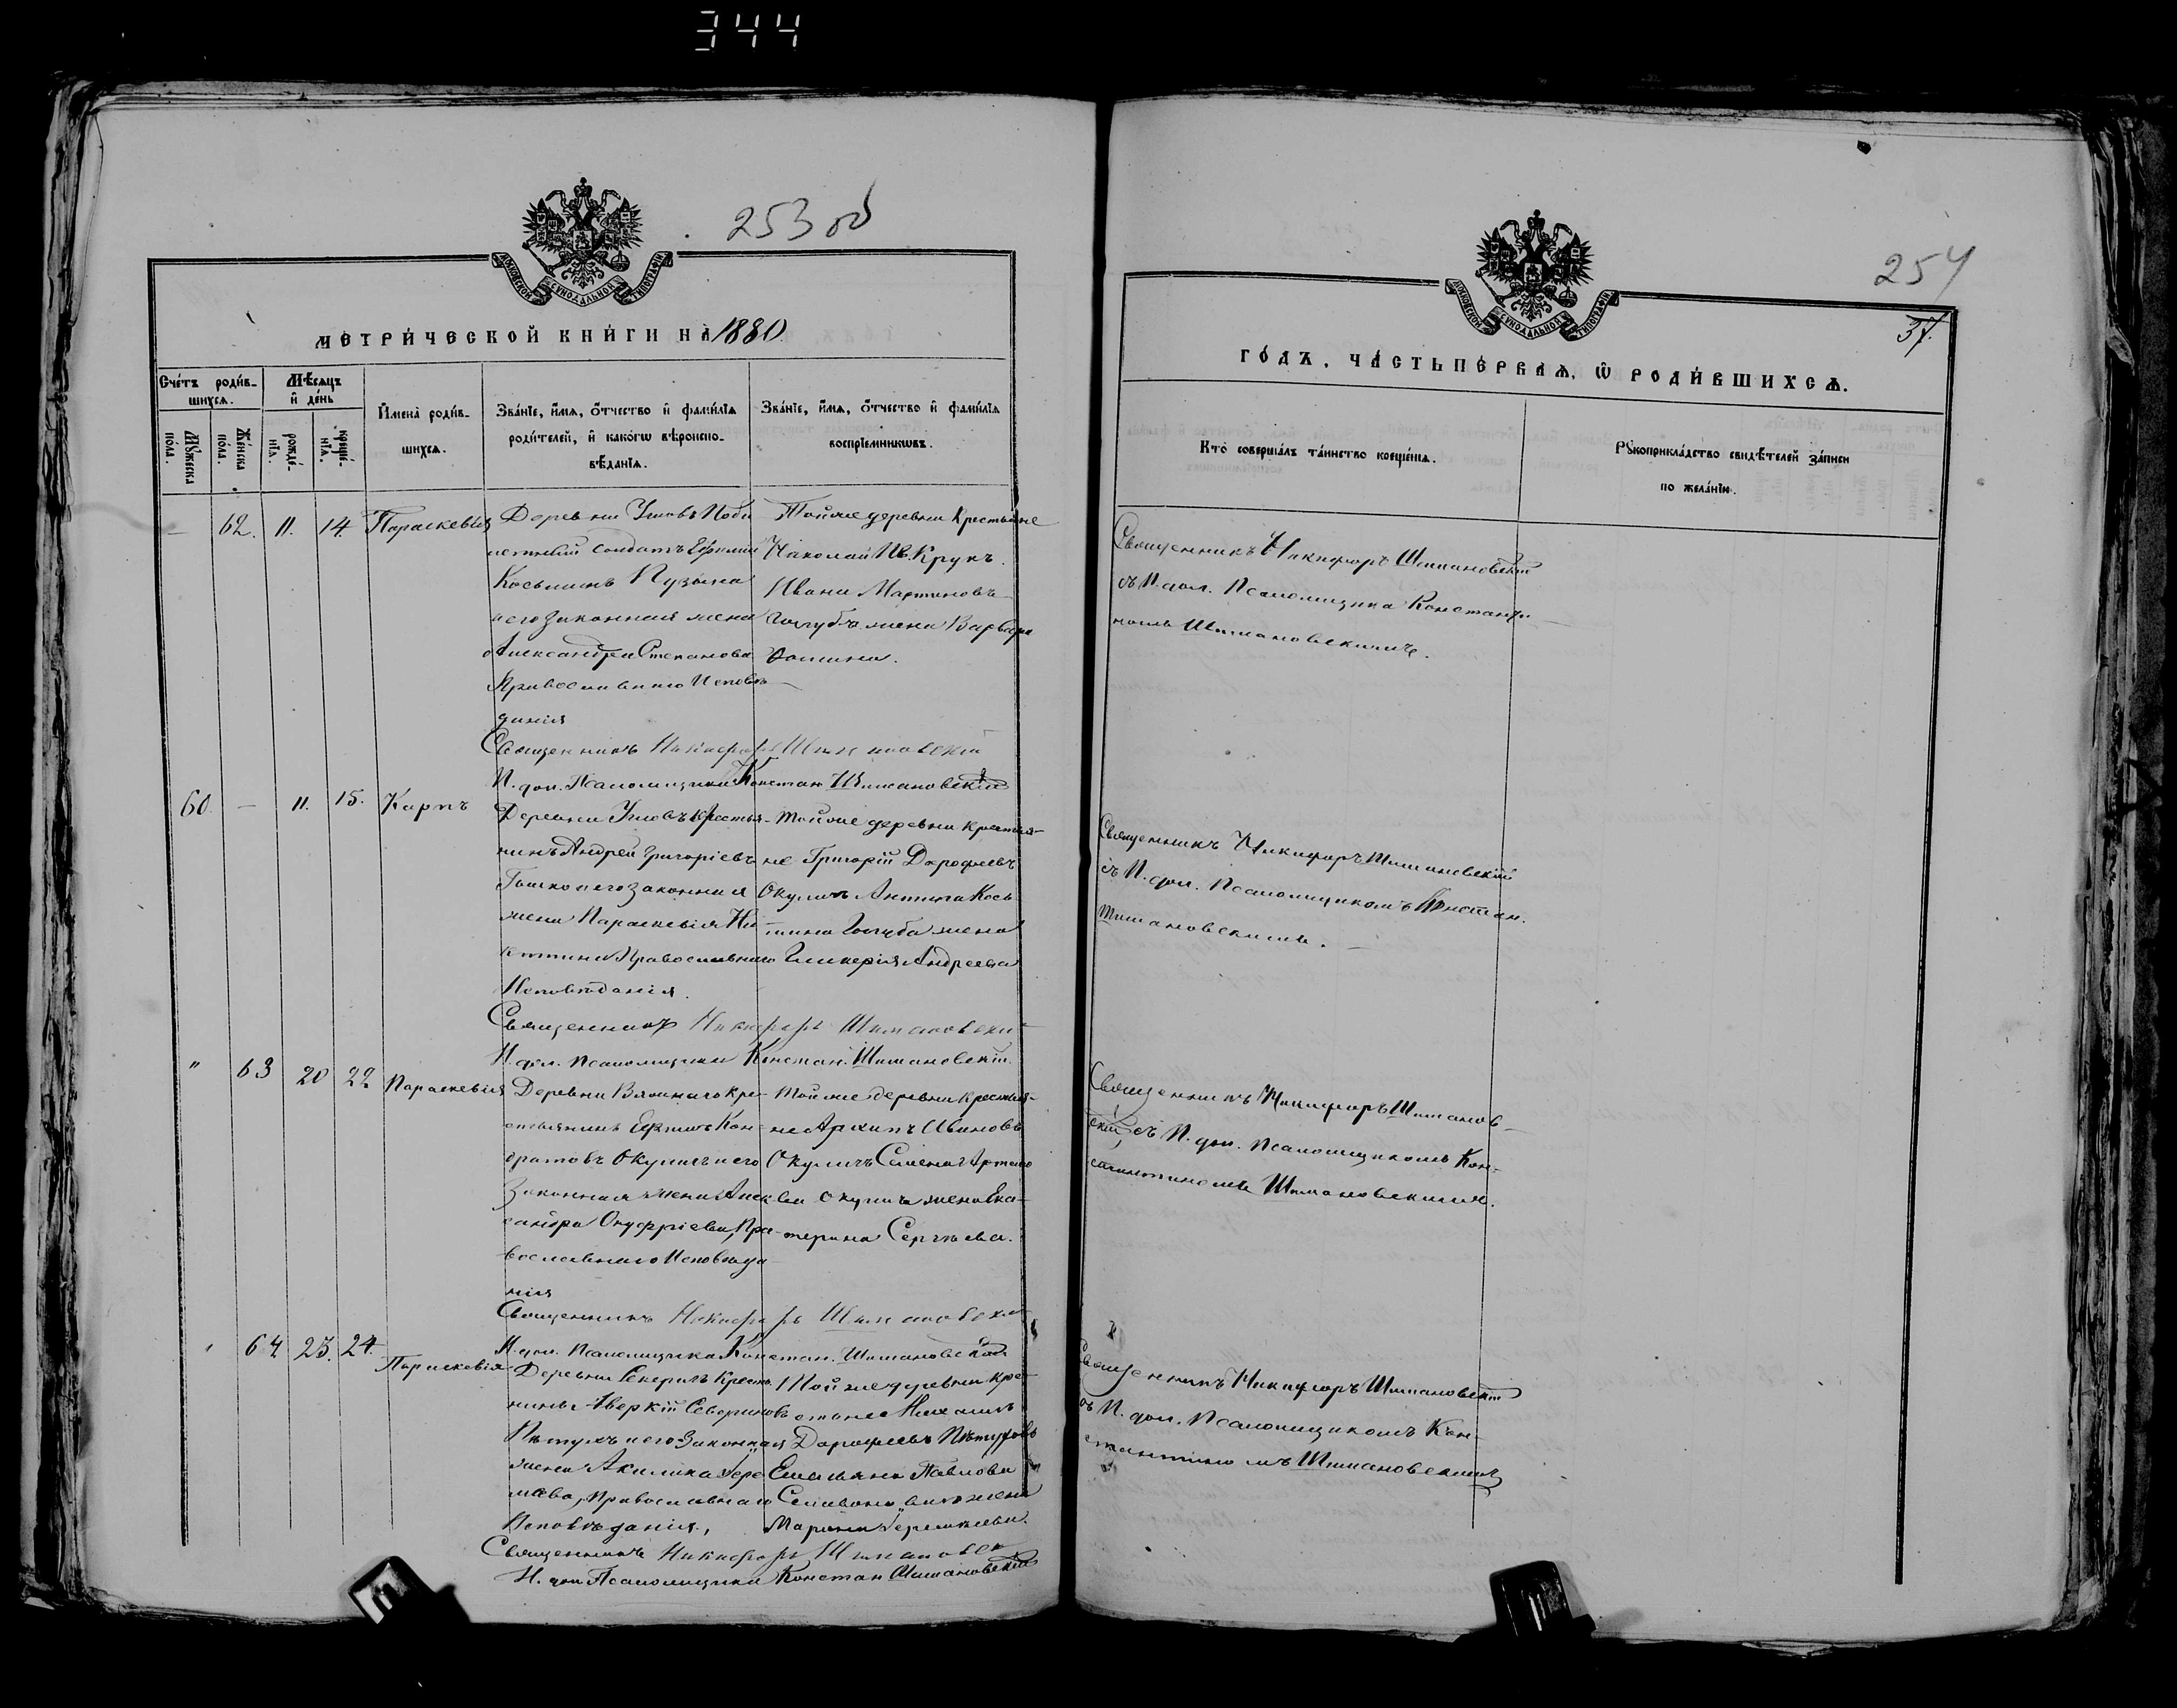 344
253 об
МОСКОВСКОЙ СѴНОДАЛЬНОЙ ТИПОГРАФІИ
МЕТРИ́ЧЕСКОЙ КНИ́ГИ НА 1880
Сче́тъ роди́вшихсѧ.
Мѣ́сѧцъ и҆ де́нь
Мꙋ́жеска по́ла.
Же́нска по́ла.
рожде́нїѧ.
креще́нїѧ.
И҆мена̀ роди́вшихсѧ.
Зва́нїе, и҆́мѧ, ѻ҆́тчество и҆ фами́лїѧ
роди́телей, и҆ како́гѡ вѣроиспо-
вѣ́данїѧ.
Зва́нїе, и҆́мѧ, ѻ҆́тчество и҆ фами́лїѧ
воспрїе́мникѡвъ.
— 62. 11. 14. Параскевія
Деревни Угловъ
солдатъ
Косьминъ Пузына
и его законная жена
Александра Степанова
Православнаго Исповѣ
данія
Тойже деревни Крестьяне
Николай Ив. Крукъ.
Ивана Мартинова
Голуба жена Варвара
Фомина.
Священникъ Никифоръ Шимановскій
И. дол. Псаломщика Констан Шимановскій
60 — 11. 15. Карпъ
Деревни Угловъ Крестья-
нинъ Андрей Григоріевъ
и его законная
жена Параскевія Ни-
китина Православнаго
Исповѣданія.
Тойже деревни крестья-
не Григорій Дорофеевъ
Окуличъ Антипа Кось-
мина Голуба жена
Гликерія Андреева
Священникъ Никифоръ Шимановскій
И. дол. псаломщика Констан. Шимановскій.
" 63 20 22 Параскевія
Деревни Вяжнаго Кре-
стьянинъ Ефимъ Кон-
дратовъ Окуличъ и его
Законная жена Алек
сандра Онуфріева, Пра-
вославнаго Исповѣда
нія
Тойже деревни Крестья-
не Архипъ Ивановъ
Окуличъ Семена Артемо
ва Окулича жена Ека-
терина Сергѣева.
Священникъ Никифоръ Шимановскій
И. дол. Псаломщика Констан. Шимановскій
" 64 23. 24. Параскевія
Деревни Секеричъ Кресть
нинъ Аверкій Севериновъ
Пѣтухъ и его Законная
жена Акилина Ере
мѣева, Православнаго
Исповѣданія,
Тойже деревни кре-
стьяне Михаилъ
Дорофеевъ Пѣтухъ
Емельяна Павлова
жена
Марина Еремѣева.
Священникъ Никифоръ Шимановск
И. дол Псаломщика Констан Шимановскій
254
37.
МОСКОВСКОЙ СѴНОДАЛЬНОЙ ТИПОГРАФІИ
ГО́ДЪ, ЧА́СТЬ ПЕ́РВАѦ, Ѡ҆ РОДИ́ВШИХСѦ.
Кто̀ соверша́лъ та́инство креще́нїѧ.
Рꙋкоприкла́дство свидѣ́телей за́писи
по жела́нїю.
Священникъ Никифоръ Шимановскій
съ И. дол. Псаломщика Константи
номъ Шимановскимъ.
Священникъ Никифоръ Шимановскій
съ И. дол. Псаломщикомъ Констан.
Шимановскимъ.
Священникъ Никифоръ Шиманов-
скій, съ И. дол. псаломщикомъ Кон-
стантиномъ Шимановскимъ.
Священникъ Никифоръ Шимановскій
съ И. дол. Псаломщикомъ Кон-
стантиномъ Шимановскимъ